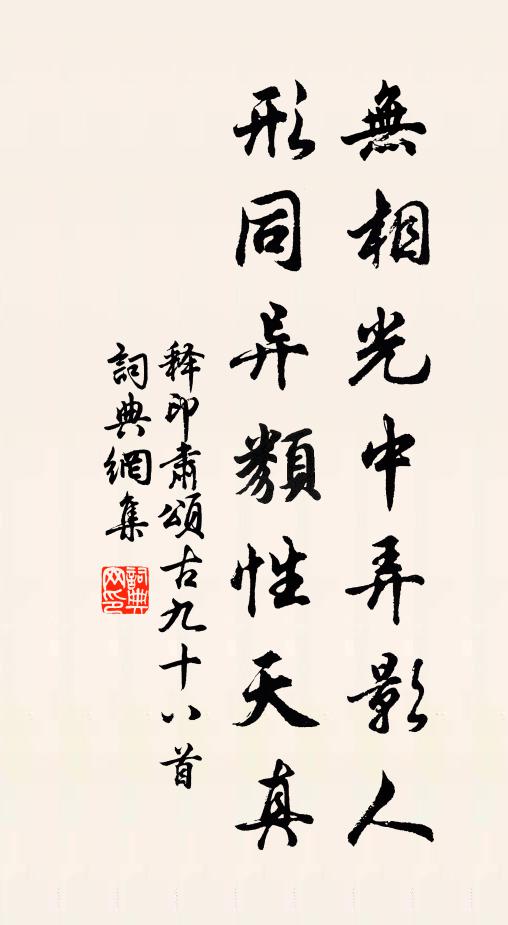 無相光中弄影人
形同异類性天真
释印肅頌古九十八首
詞典網集
詞典网印